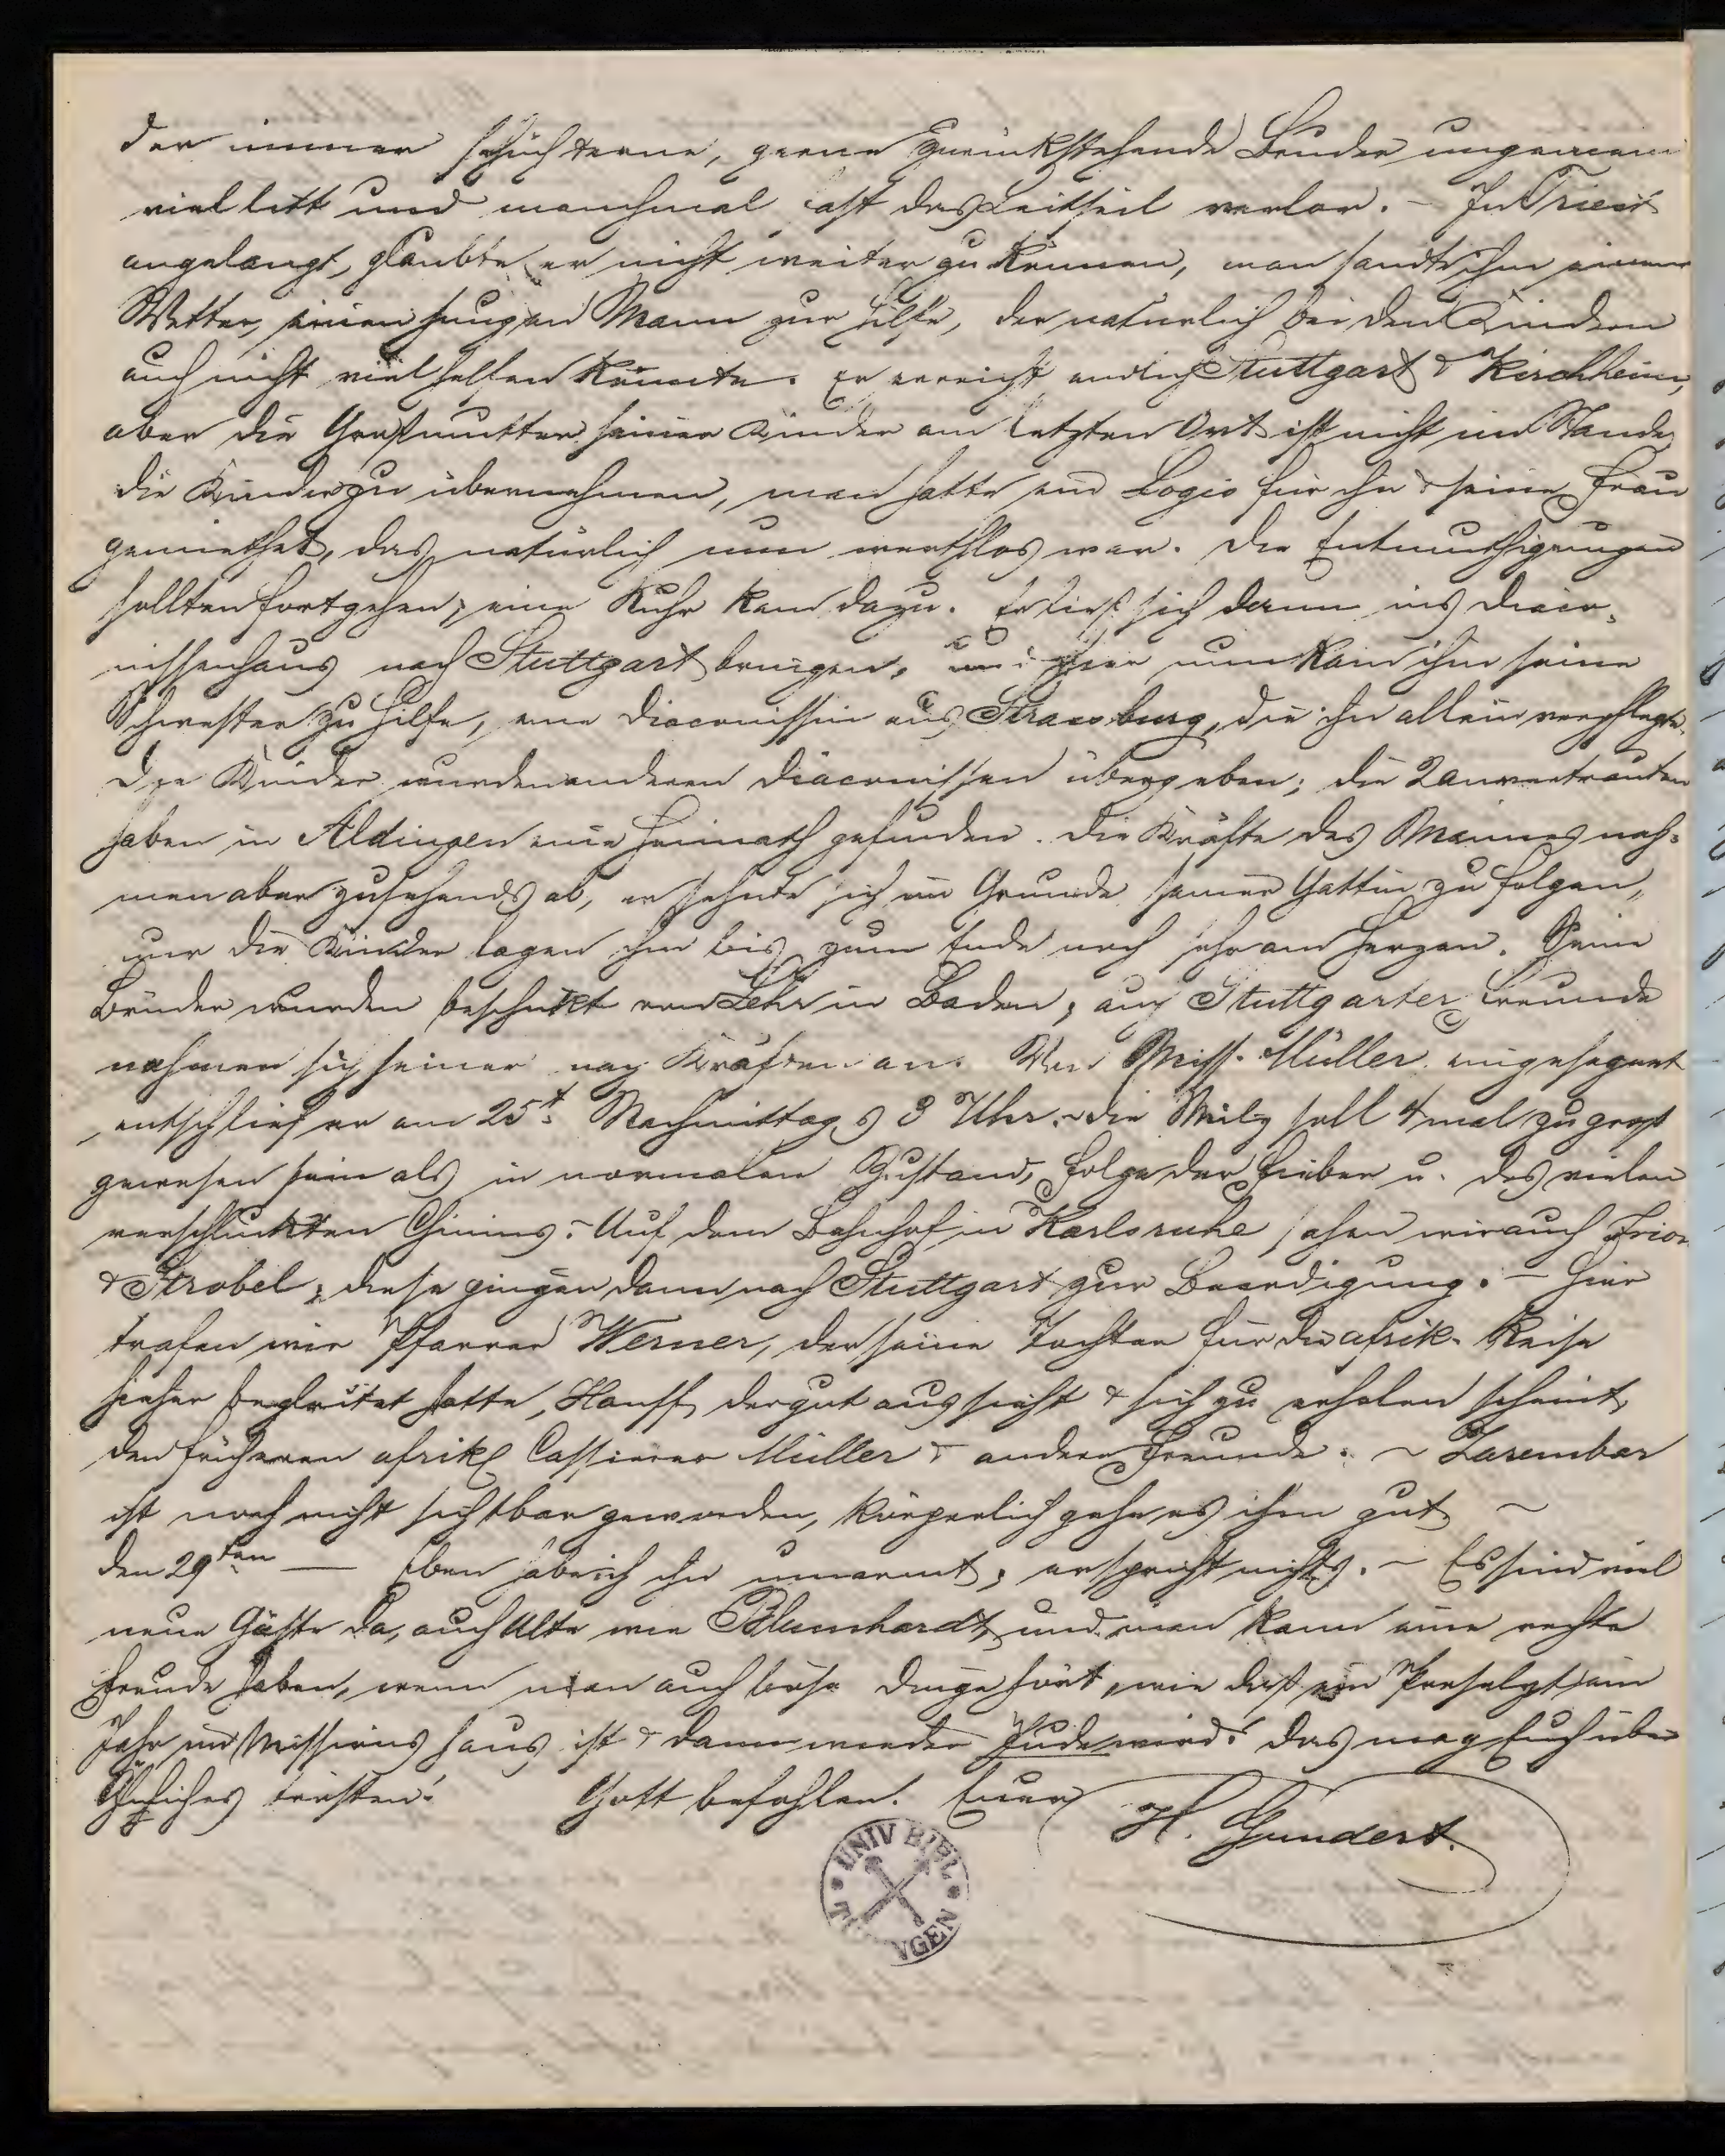 der immer schüchterne, gerne zurückstehende Bruder ungemein
viel litt und manchmal fast das Leitseil verlor. – In Triest
angelangt, glaubte er nicht weiter zu können, man sandte ihm einen
Vetter, einen jungen Mann zur Hilfe, der natürlich bei den Kindern
auch nicht viel helfen konnte. Er erreicht endlich Stuttgart & Kirchheim,
aber die Großmutter seiner Kinder am letzten Ort ist nicht im Stande
die Kinder zu übernehmen, man hatte ein Logis für ihn & seine Frau
gemiethet, das natürlich nun werthlos war. Die Entmuthigungen
sollten fortgehen; eine Ruhr kam dazu. Er ließ sich dann ins Diaco-
nissenhaus nach Stuttgart bringen, und hier nun kam ihm seine
Schwester zu Hilfe, eine Diaconissin aus Strassburg, die ihn allein verpflegte.
Die Kinder wurden anderen Diaconissen übergeben; die 2 anvertrauten
haben in Aldingen eine Heimath gefunden. Die Kräfte des Mannes nah-
men aber zusehends ab, er sehnte sich im Grunde seiner Gattin zu folgen,
nur die Kinder lagen ihm bis zum Ende noch sehr am Herzen. Seine
Brüder wurden beschickt von Lehr in Baden; auch Stuttgarter Freunde
nahmen sich seiner nach Kräften an. Von Miss. Müller eingesegnet
entschlief er am 25t. Nachmittags 3 Uhr. – Die Milz soll 4 mal zu groß
gewesen sein als in normalen Zustand, Folge der Fieber u. des vielen
verschluckten Chinins. – Auf dem Bahnhof in Karlsruhe sahen wir auch Frion
& Strobel; diese gingen dann nach Stuttgart zur Beerdigung. – Hier
trafen wir Pfarrer Werner, der seine Tochter für die afrik. Reise
hieher begleitet hatte, Hauff, der gut aussieht & sich zu erholen scheint,
den früheren afrik. Cassierer Müller & andere Freunde. – Zarembar
ist noch nicht sichtbar geworden, körperlich gehe es ihm gut –
den 29ten — Eben habe ich ihn umarmt; er spricht nichts. – Es sind viel
neue Gäste da, auch Alte wie Blumhardt, und man kann eine rechte
Freude haben, wenn man auch böse Dinge hört, wie daß ein Proselyt ein
Jahr im Missionshaus ist & dann wieder Jude wird! Das mag Euch über
Ähnliches trösten! Gott befohlen. Euer H. Gundert.
UNIV BIBL
T NGEN